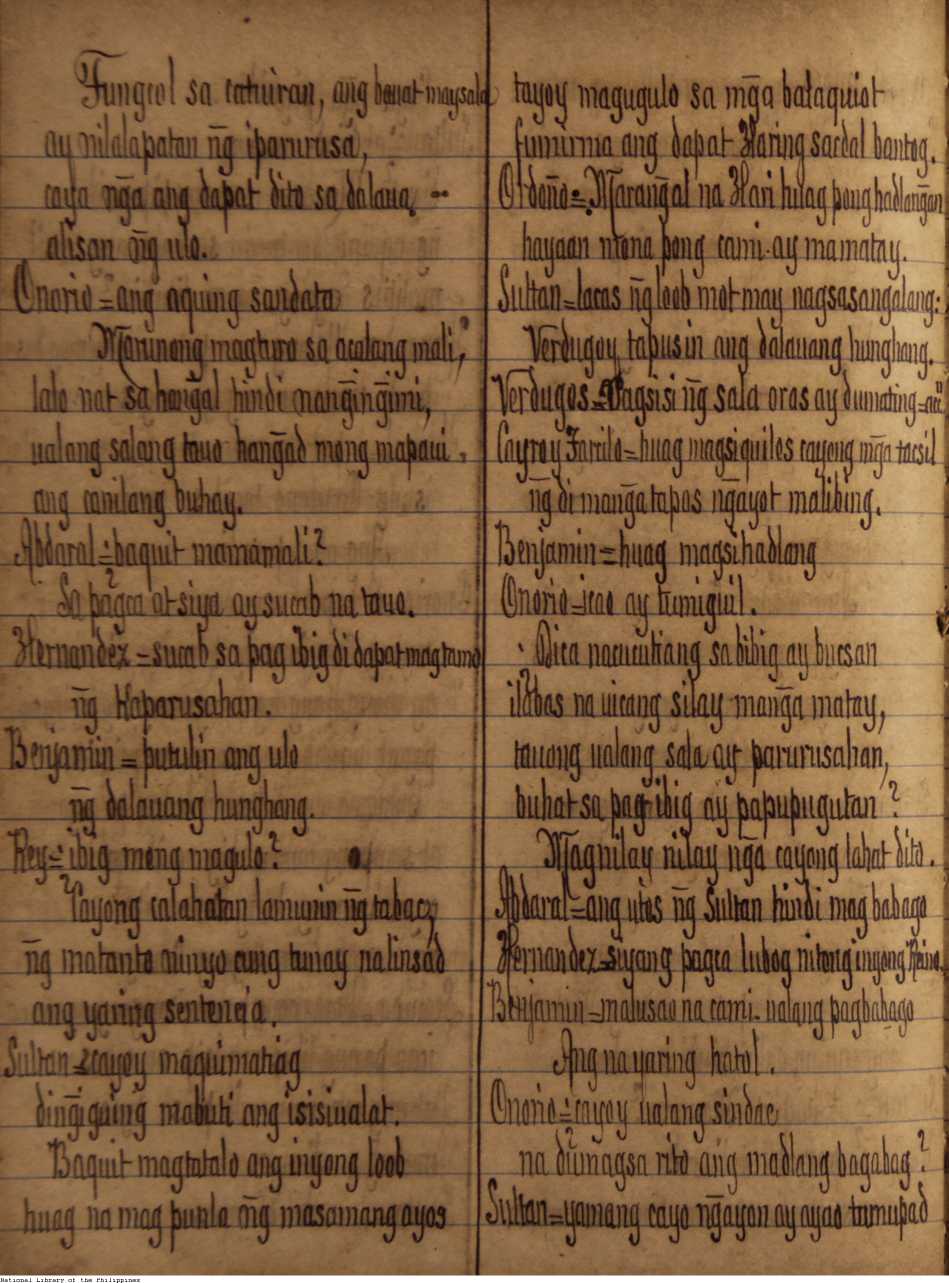 Fungcol sa catúiran, ang bauat maysala
ay nilalapatan n̄g iparurusá,
caya n̄ga ang dapat dito sa dalaua,
alisan n̄g ulo.
Onorio = ang aquing sandata
Marunong magturo sa acalang mali,
lalo nat sa han̄gal hindi nan̄gin̄gimi,
ualang salang tauo han̄gad mong mapaui,
ang canilang buhay.
Abdaral = baquit mamamali?
Sa pagca at siya ay sucab na tauo.
Hernandez = sucab sa pag ibig di dapat magtamo
n̄g Kaparusahan.
Benjamin = putulin ang ulo
n̄g dalauang hunghang.
Rey = ibig mong magulo?
Tayong calahatan lamunin n̄g tabac,
n̄g matanto ninyo ang tunay na linsad
ang yaring sentencia.
Sultan = cayoy maquimatiag
din̄giguing mabuti ang isisiualat.
Baquit magtatalo ang inyong loob
huag na mag punla n̄g masamang ayos
tayoy magugulo sa m̄ga balaquiot
fumirma ang dapat Haring sacdal bantog.
Ordoño = Maran̄gal na Hari huag pong hadlan̄gan
hayaan mona pong cami ay mamatay.
Sultan = lacas n̄g loob mot may nagsasangalang:
Verdugoy, tapusin ang dalauang hunghang.
Verdugos = Pagsisi n̄g sala oras ay dumating =
Cayroy Farcilo = huag magsiquilos cayong m̄ga tacsil
n̄g di man̄ga tapos n̄gayot malibing.
Benjamin = huag magsihadlang
Onorio = icao ay tumiguil.
Dica nacucutiang sa bibig ay bucsan
ilabas na uicang silay man̄ga matay,
tauong ualang sala ay parurusahan,
buhat sa pag-ibig ay papupugutan?
Magnilay nilay n̄ga cayong lahat dito.
Abdaral = ang utos n̄g Sultan hindi mag babago
Hernandez = siyang pagca lubog nitong inyong Reino.
Benjamin = malusao na cami ualang pagbabago
Ang na yaring hatol.
Onorio = cayoy ualang sindac
na dumagsa rito ang madlang bagabag?
Sultan = yamang cayo n̄gayon ay ayao tumupad
National Library of the Philippines